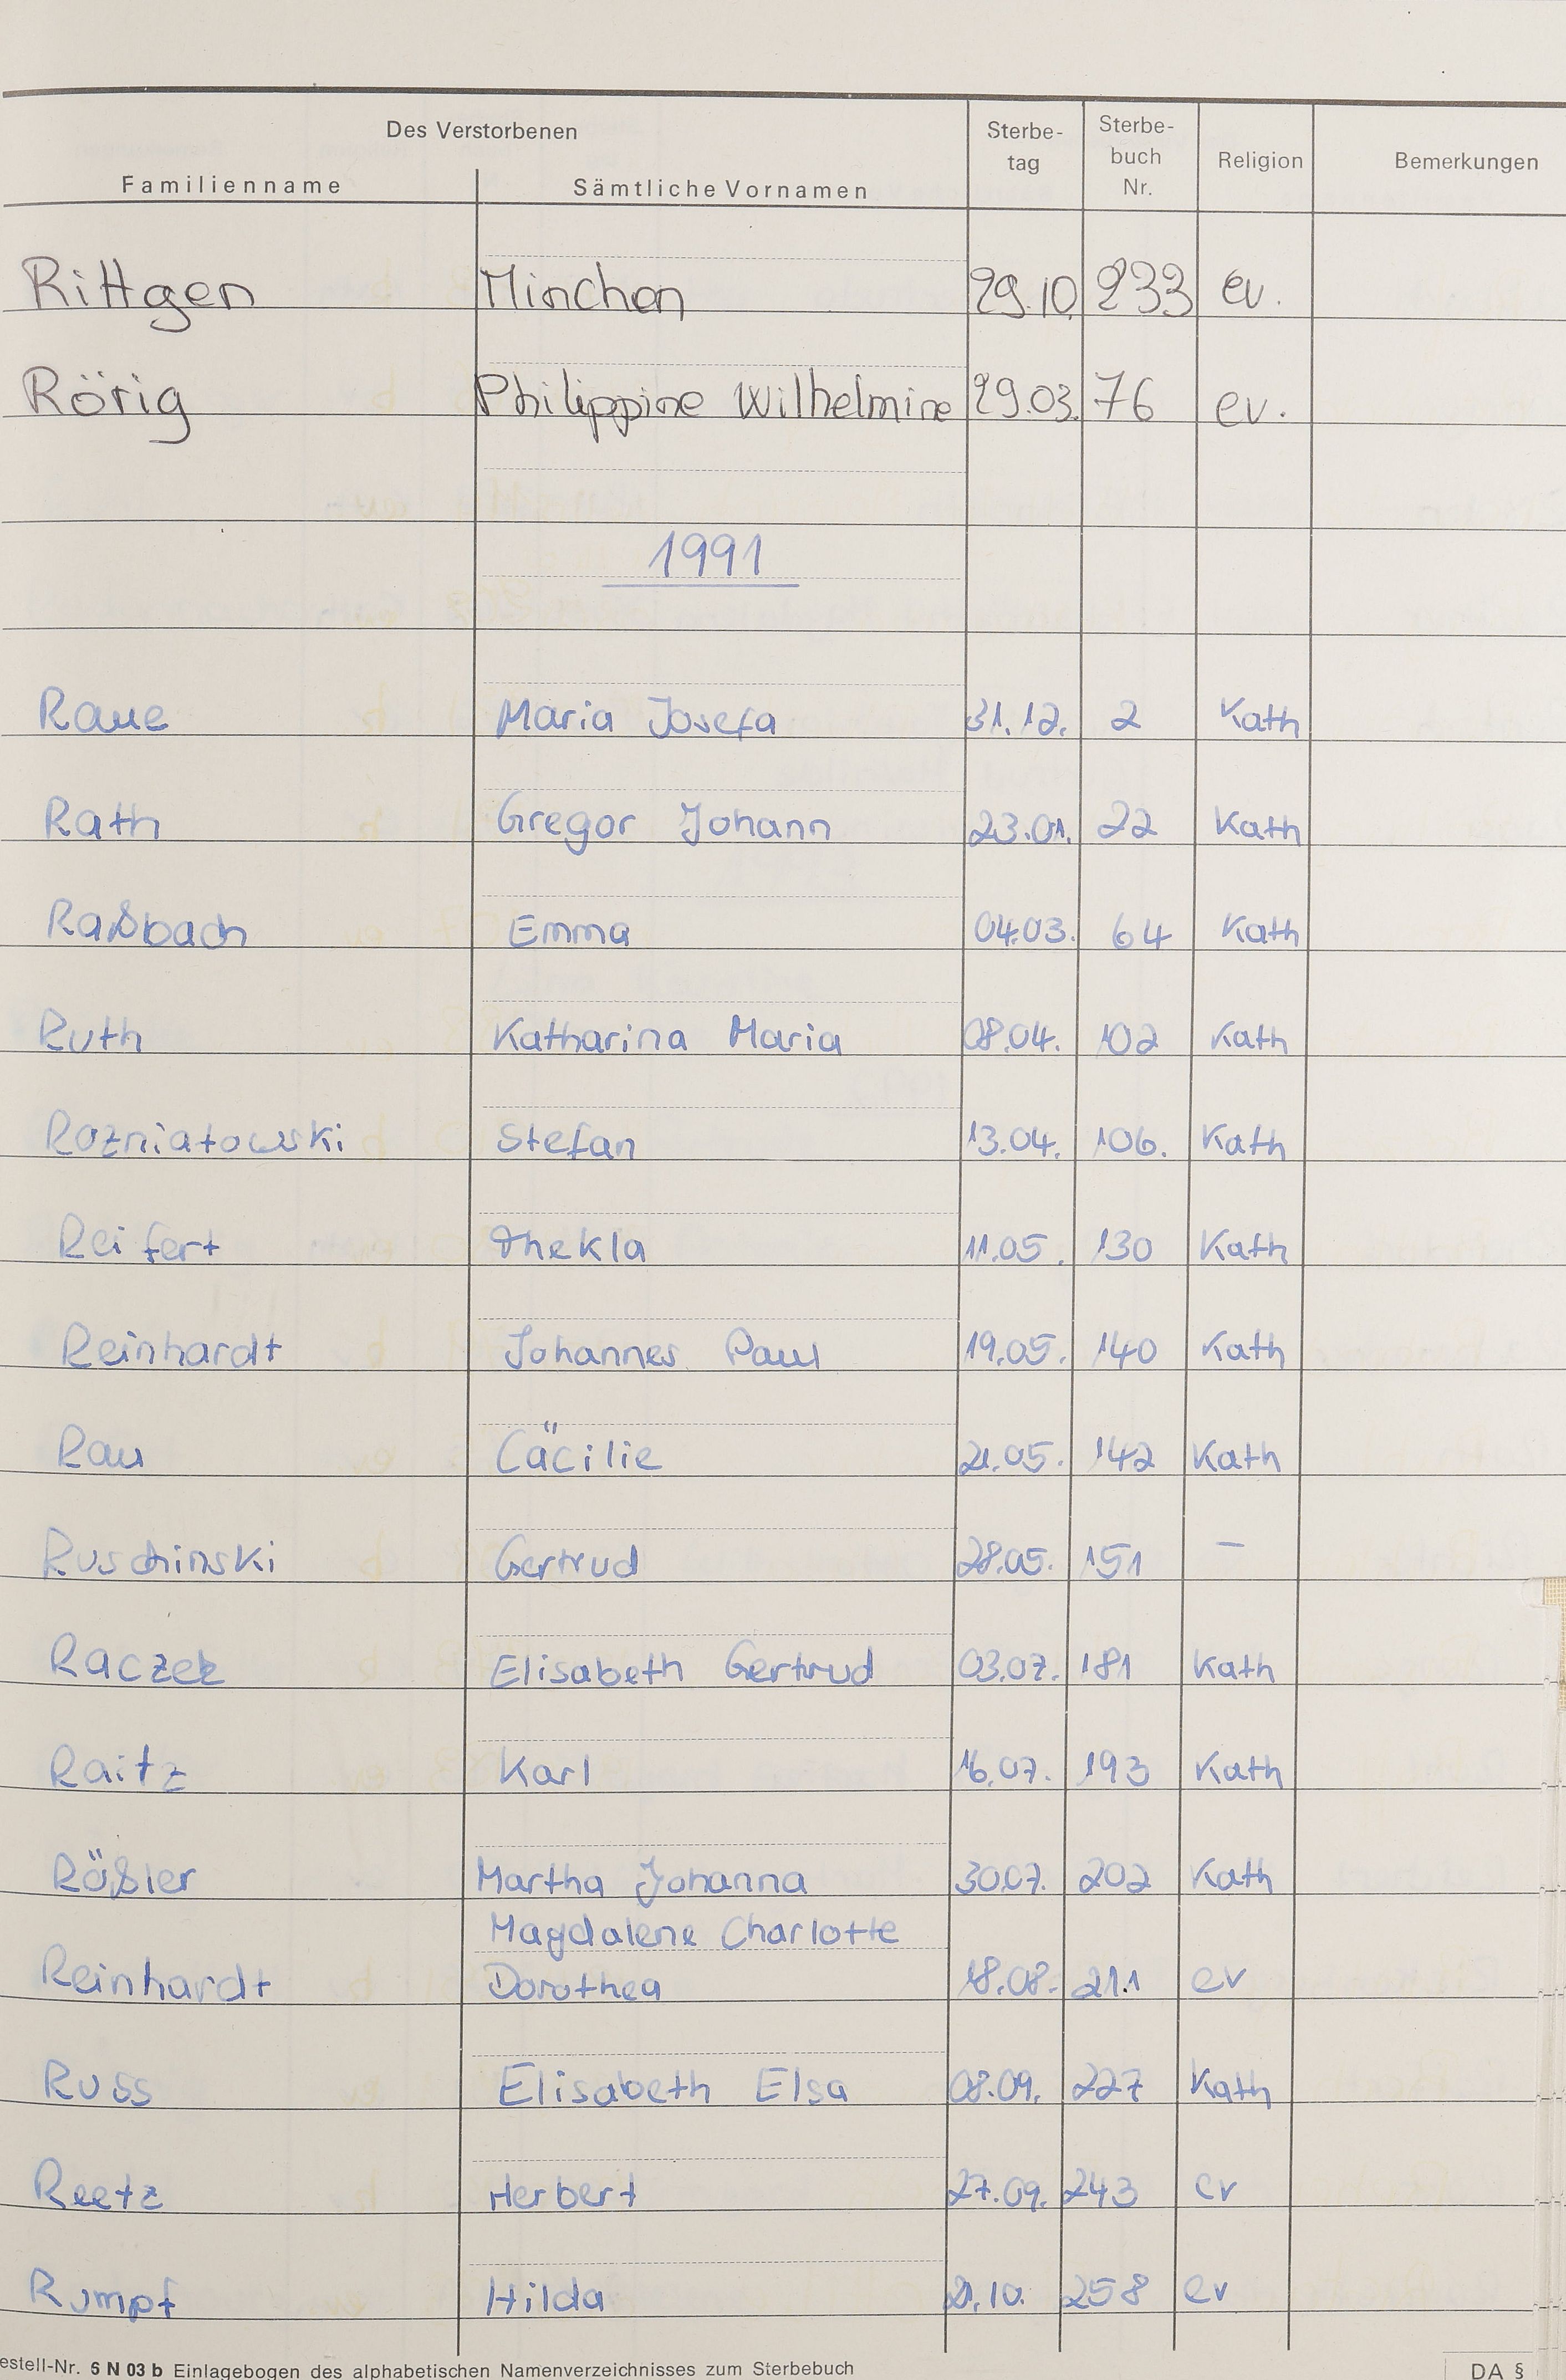 Des Verstorbenen
Sterbe-
tag
Sterbe-
buch
Nr.
Religion
Bemerkungen
Familienname
Sämtliche Vornamen
Rittgen Minchen 29.10. 233 ev.
Rörig Philippine Wilhelmine 29.03. 76 ev.
1991
Raue Maria Josefa 31.12. 2 Kath
Rath Gregor Johann 23.01. 22 Kath
Raßbach Emma 04.03. 64 Kath
Ruth Katharina Maria 08.04. 102 Kath
Rozniatowski Stefan 13.04. 106. Kath
Reifert Thekla 11.05. 130 Kath
Reinhardt Johannes Paul 19.05. 140 Kath
Rau Cäcilie 21.05. 142 Kath
Ruschinski Gertrud 28.05. 151 –
Raczek Elisabeth Gertrud 03.07. 181 Kath
Raitz Karl 16.07. 193 Kath
Rößler Martha Johanna 30.07. 202 Kath
Magdalene Charlotte
Reinhardt Dorothea 18.08. 211 ev
Russ Elisabeth Elsa 08.09. 227 Kath
Reetz Herbert 27.09. 243 ev
Rumpf Hilda 21.10. 258 ev
estell-Nr. 6 N 03 b Einlagebogen des alphabetischen Namenverzeichnisses zum Sterbebuch
DA §